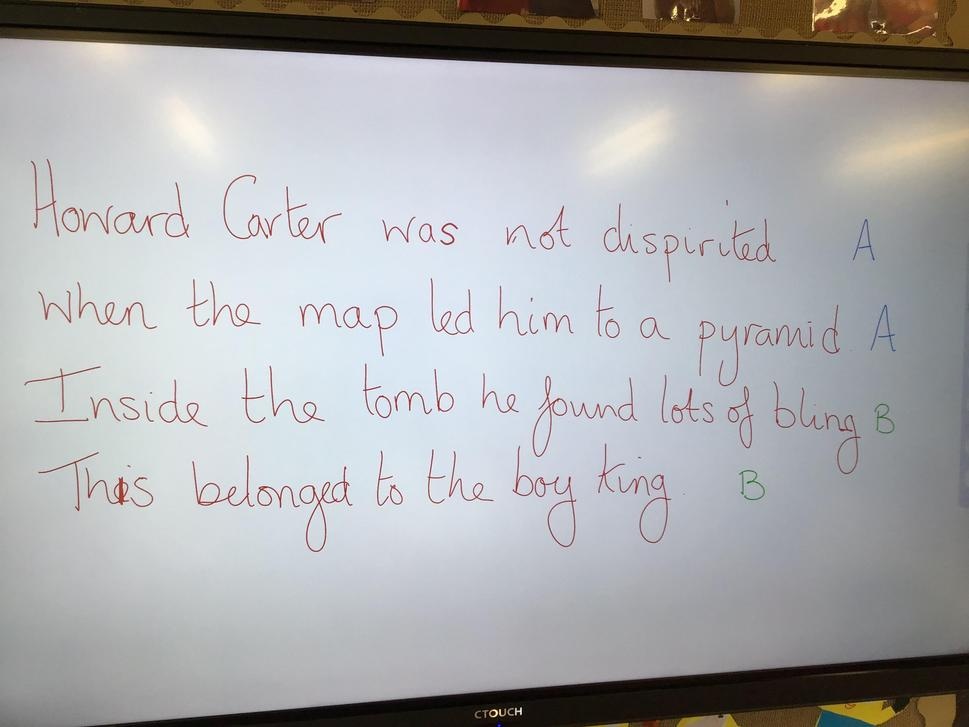 Howard Carter was not dispirited A
when the map led him to a pyramid. A
Inside the tomb he found lots of bling B
This belonged to the boy king. B
CTOUCH